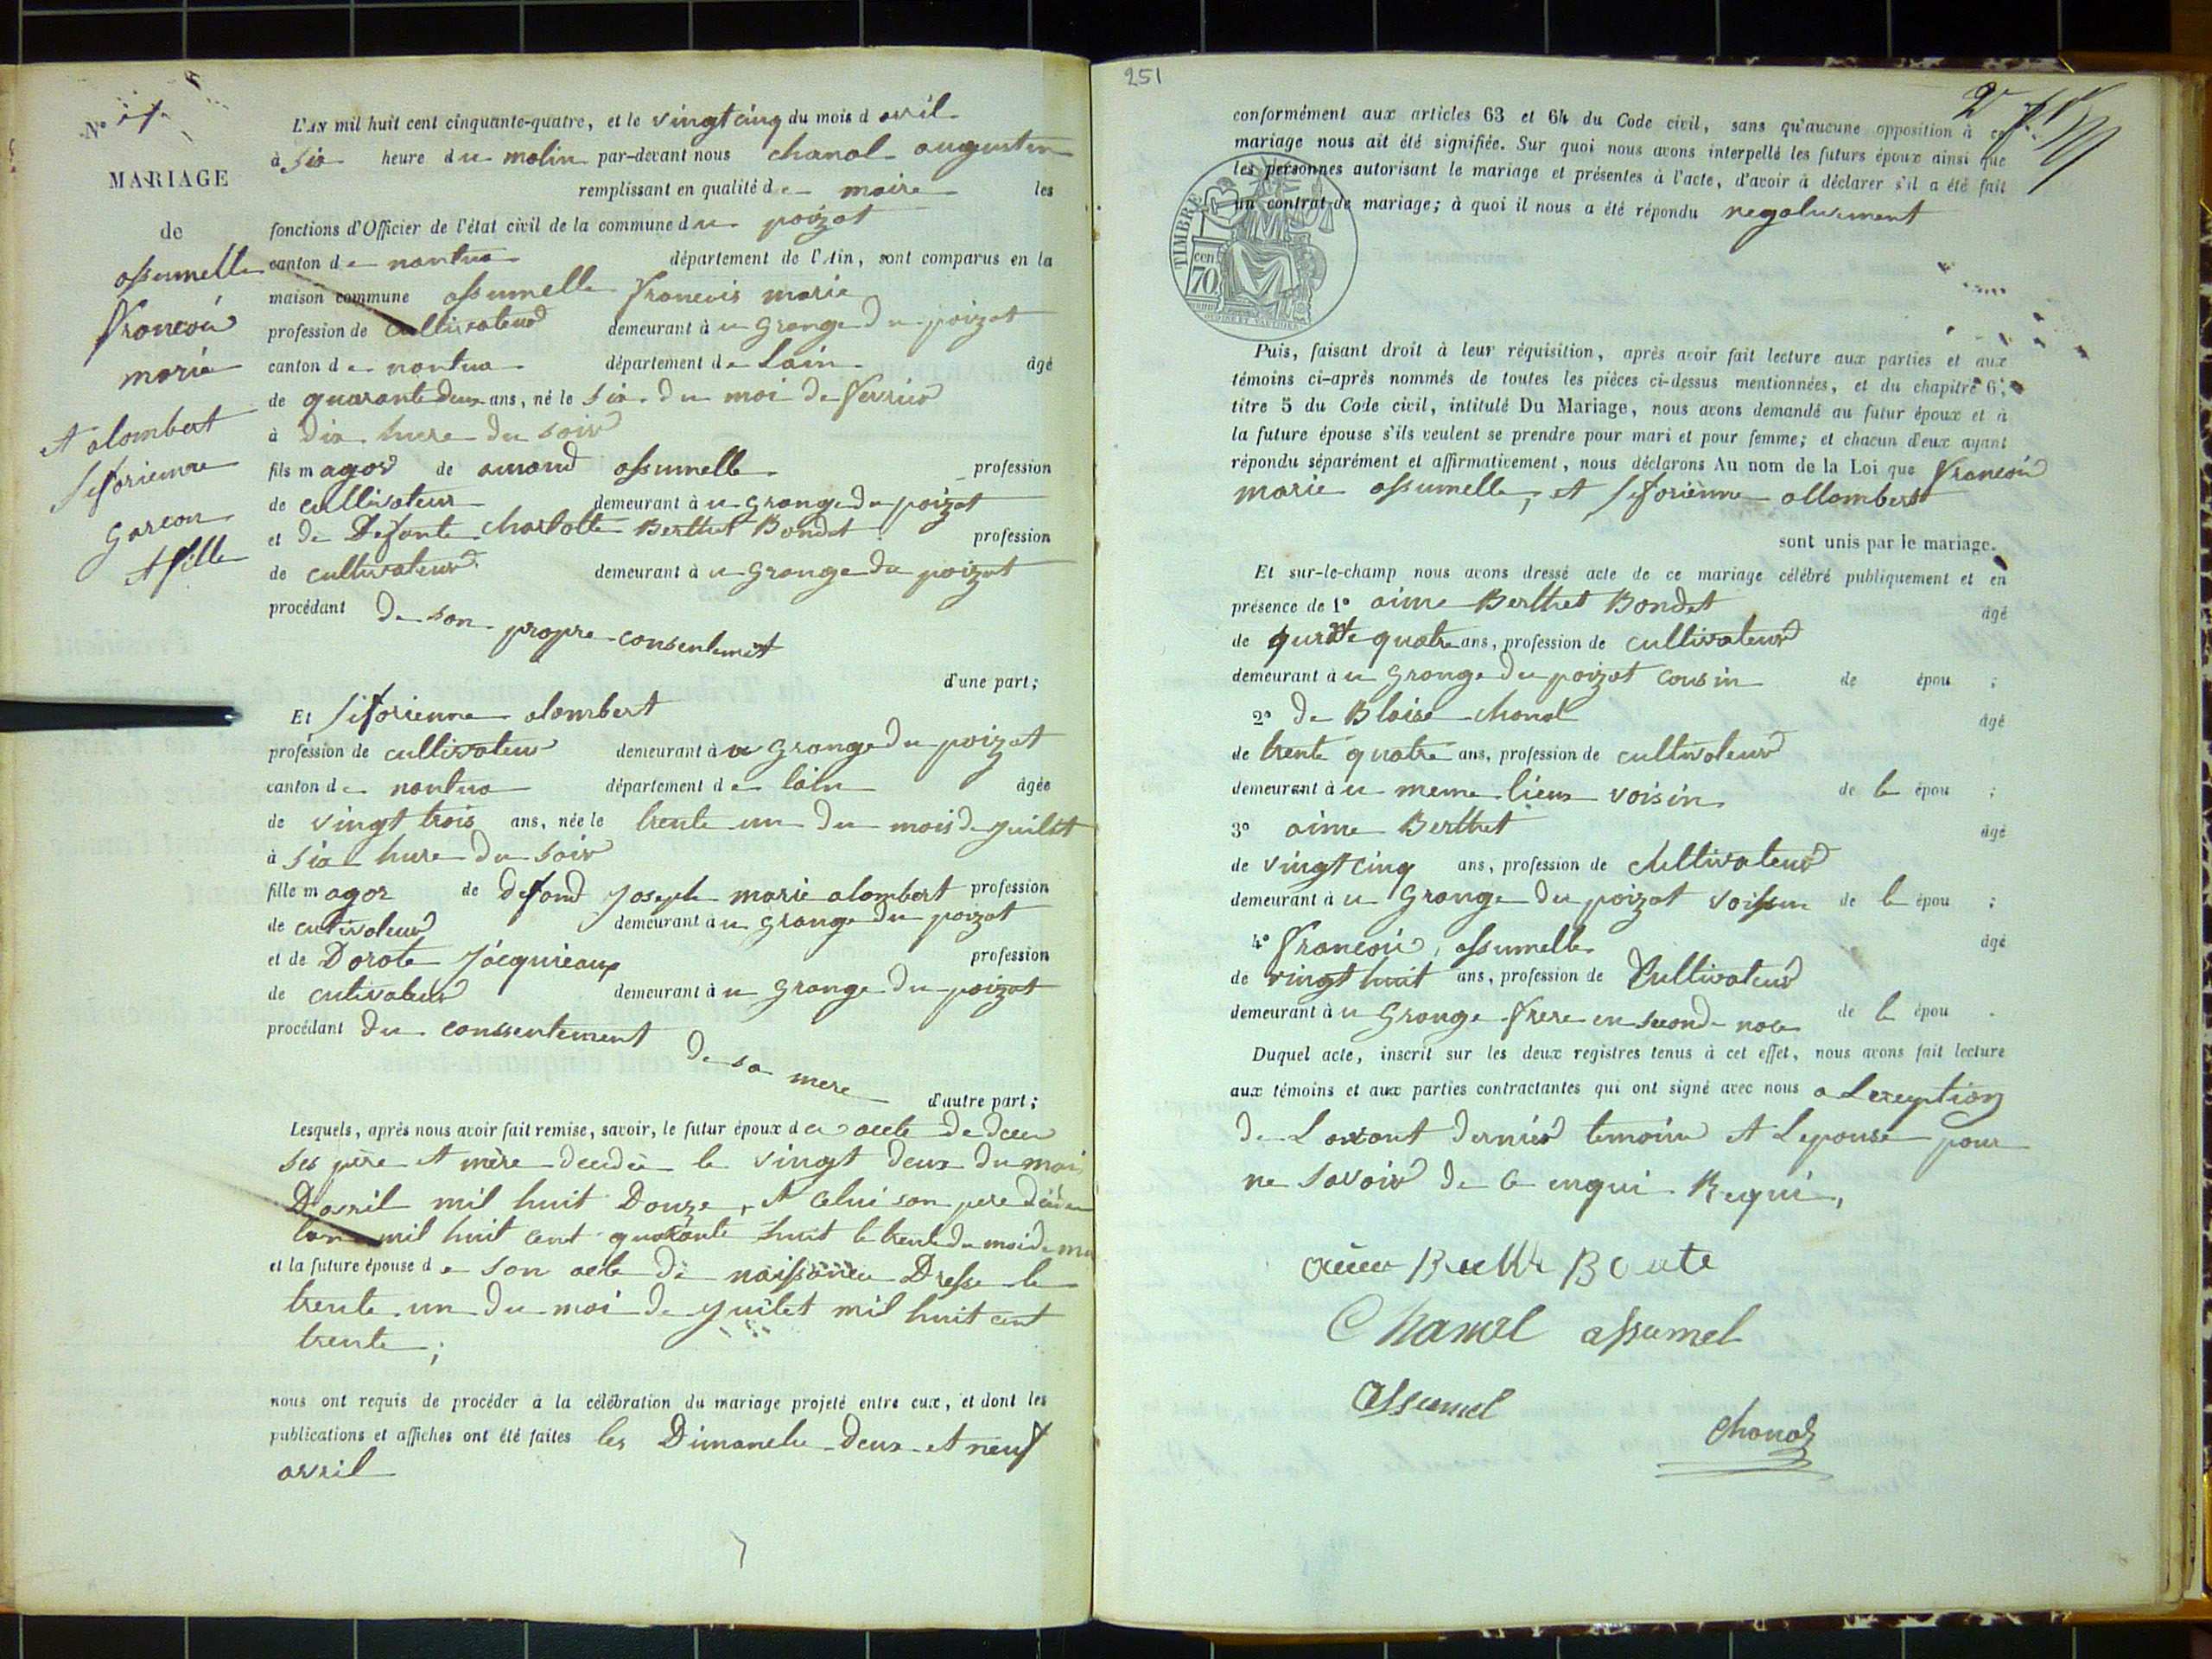 N° 1
MARIAGE
de
assumelle
francois
marie
et alombert
siforienne
garcon
et fille
L'AN mil huit cent cinquante-quatre, et le vingt cinq du mois d avril
à six heure du matin par-devant nous chanal augustin
remplissant en qualité de maire les
fonctions d'Officier de l'état civil de la commune du poizat
canton de nantua département de l'Ain, sont comparus en la
maison commune assumelle francois marie
profession de cultivateur demeurant à u grange du poizat
canton de nantua département de lain âgé
de quarante deux ans, né le six du moi de fevrier
à dix hure du soir
fils magor de amand assumelle profession
de cultivateur demeurant à u grange du poizat
et de Defante charlotte Berthet Bondet profession
de cultivateur demeurant à u grange du poizat
procédant de son propre consentement
d'une part;
Et siforienne alombert
profession de cultivateur demeurant à u grange du poizat
canton de nantua département de lain âgée
de vingt trois ans, née le trente un du mois de juilet
à six hure du soir
fille magor de defand joseph marie alombert profession
de cutivateur demeurant à u grange du poizat
et de Dorote jacquieaux profession
de cutivateur demeurant à u grange du poizat
procédant du conssentement de sa mere
d'autre part;
Lesquels, après nous avoir fait remise, savoir, le futur époux d acte de
ses père et mère decedee le vingt deux du mois
Davril mil huit Douze, et celui son pere
lan mil huit cent quarante huit le trente du moi de
et la future épouse de son acte de naissance Dresse le
trente un du moi de juilet mil huit cent
trente;
nous ont requis de procéder à la célébration du mariage projeté entre eux, et dont les
publications et affiches ont été faites les Dimanche deux et neuf
avril
251
conformément aux articles 63 et 64 du Code civil, sans qu'aucune opposition à ce
mariage nous ait été signifiée. Sur quoi nous avons interpellé les futurs époux ainsi que
les personnes autorisant le mariage et présentes à l'acte, d'avoir à déclarer s'il a été fait
un contrat de mariage; à quoi il nous a été répondu negativement
TIMBRE
cen
70
Puis, faisant droit à leur réquisition, après avoir fait lecture aux parties et aux
témoins ci-après nommés de toutes les pièces ci-dessus mentionnées, et du chapitre 6,
titre 5 du Code civil, intitulé Du Mariage, nous avons demandé au futur époux et à
la future épouse s'ils veulent se prendre pour mari et pour femme; et chacun d'eux ayant
répondu séparément et affirmativement, nous déclarons Au nom de la Loi que francois
marie assumelle, et siforienne allombert
sont unis par le mariage.
Et sur-le-champ nous avons dressé acte de ce mariage célébré publiquement et en
présence de 1° aime Berthet Bondet âgé
de quatre ans, profession de cultivateur
demeurant à u grange du poizat cousin de épou ;
2° de Blaise chanal âgé
de trente quatre ans, profession de cultivateur
demeurant à u meme lieux voisin de le épou ;
3° aime Berthet âgé
de vingt cinq ans, profession de cultivateur
demeurant à u grange du poizat voissin de le épou ;
4° francois assumelle âgé
de vingt huit ans, profession de cultivateur
demeurant à u grange frere en seconde noce de le épou .
Duquel acte, inscrit sur les deux registres tenus à cet effet, nous avons fait lecture
aux témoins et aux parties contractantes qui ont signé avec nous a Lexeption
de Lavant dernier temoin et Lepouse pour
ne savoir de ce enqui Requi,
Chanal assumel
assumel
chanal